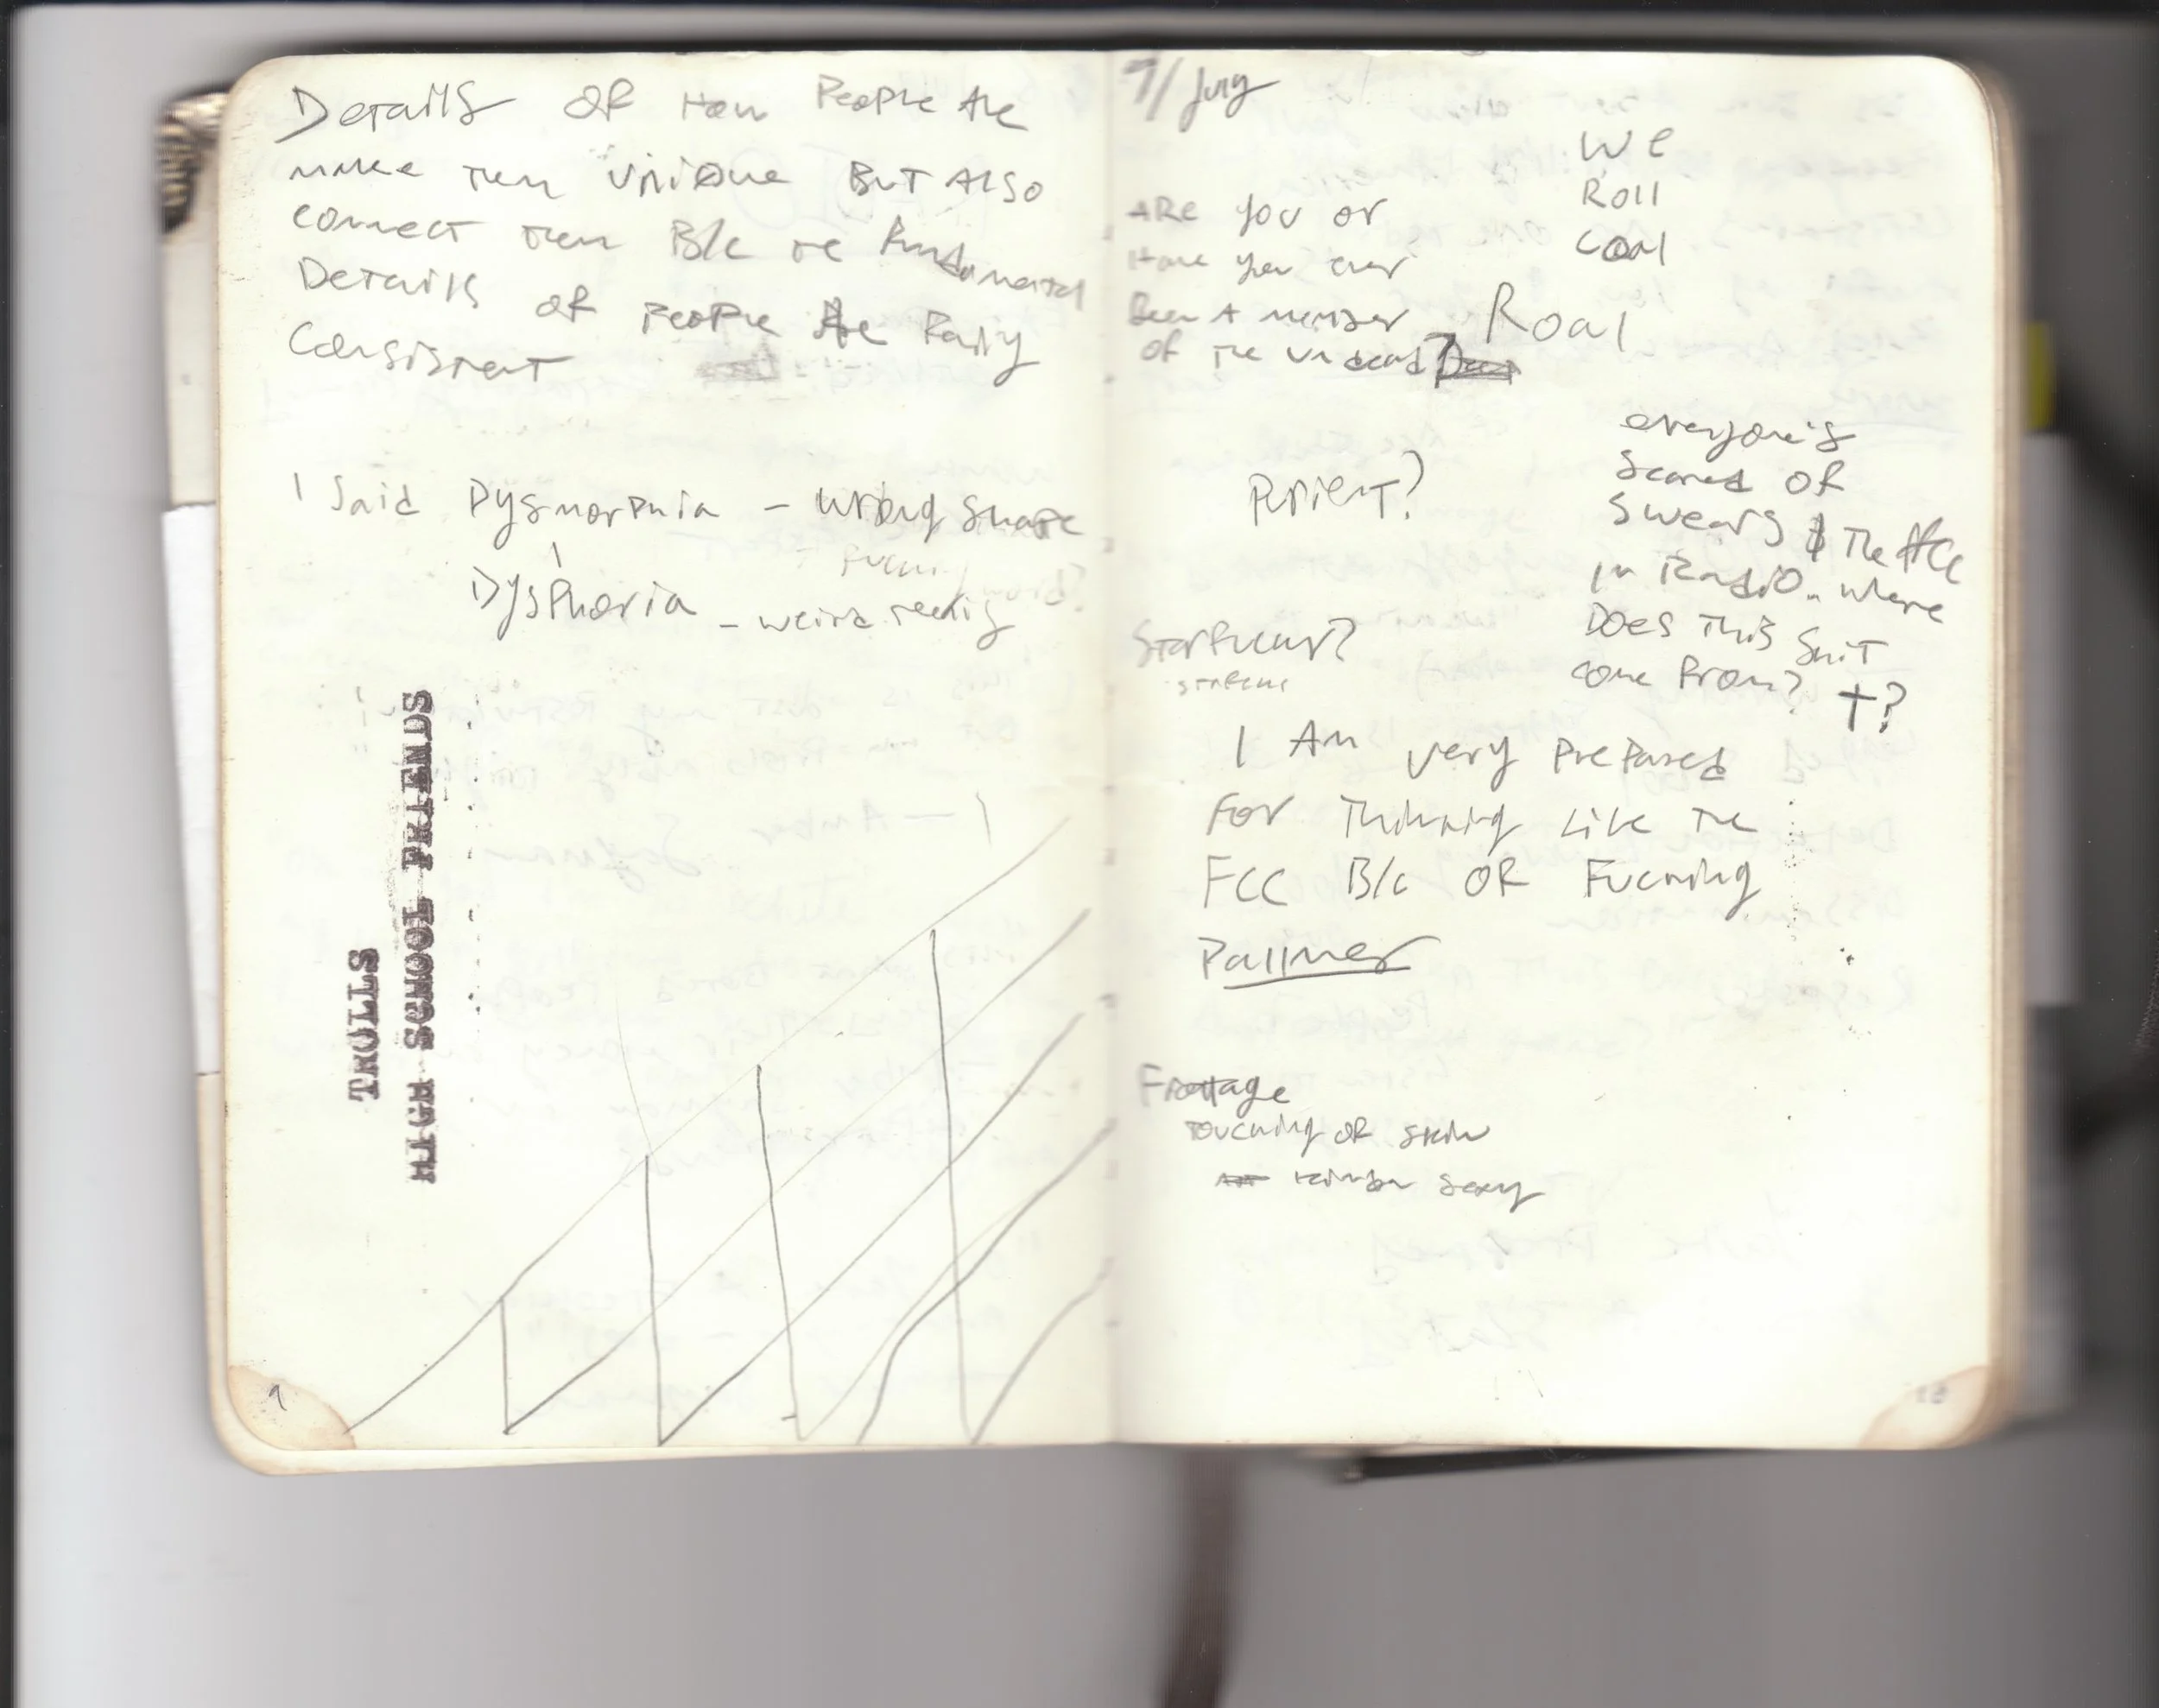 Details of How People Are
make Them Unique But Also
connect Them B/c The Fundamental
Details of People Are Fairly
Consistent
I Said Dysmorphia - wrong shape
Dysphoria - weird feeling
SUNFATH SCHOOL TOOWGS HATH
TROLLS
7/July
We
Roll
Coal
Roal
Are you or
Have you ever
Been A member
of The Undead?
Purient?
everyone's
scared of
swears & The FCC
in Radio. Where
Does This Shit
come From? †?
I Am very Prepared
For Thinking Like The
FCC B/c OF Fucking
Frottage
Touching of skin
kinda sexy